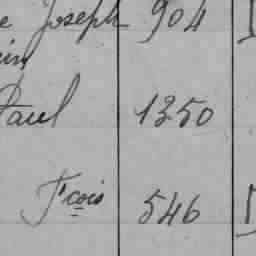 e Joseph 904
in
Paul 1350
Fcois 546